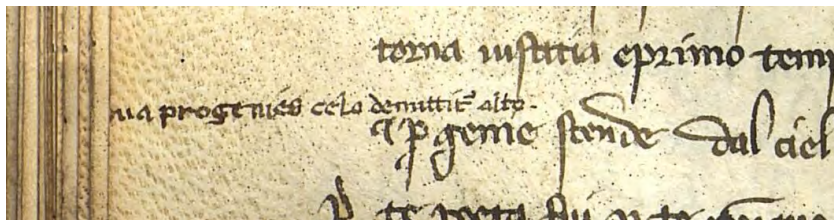 torna iustitia e primo temp
ua progenies celo demittit alto.
e p̱genie scende dal ciel
te poeta fui